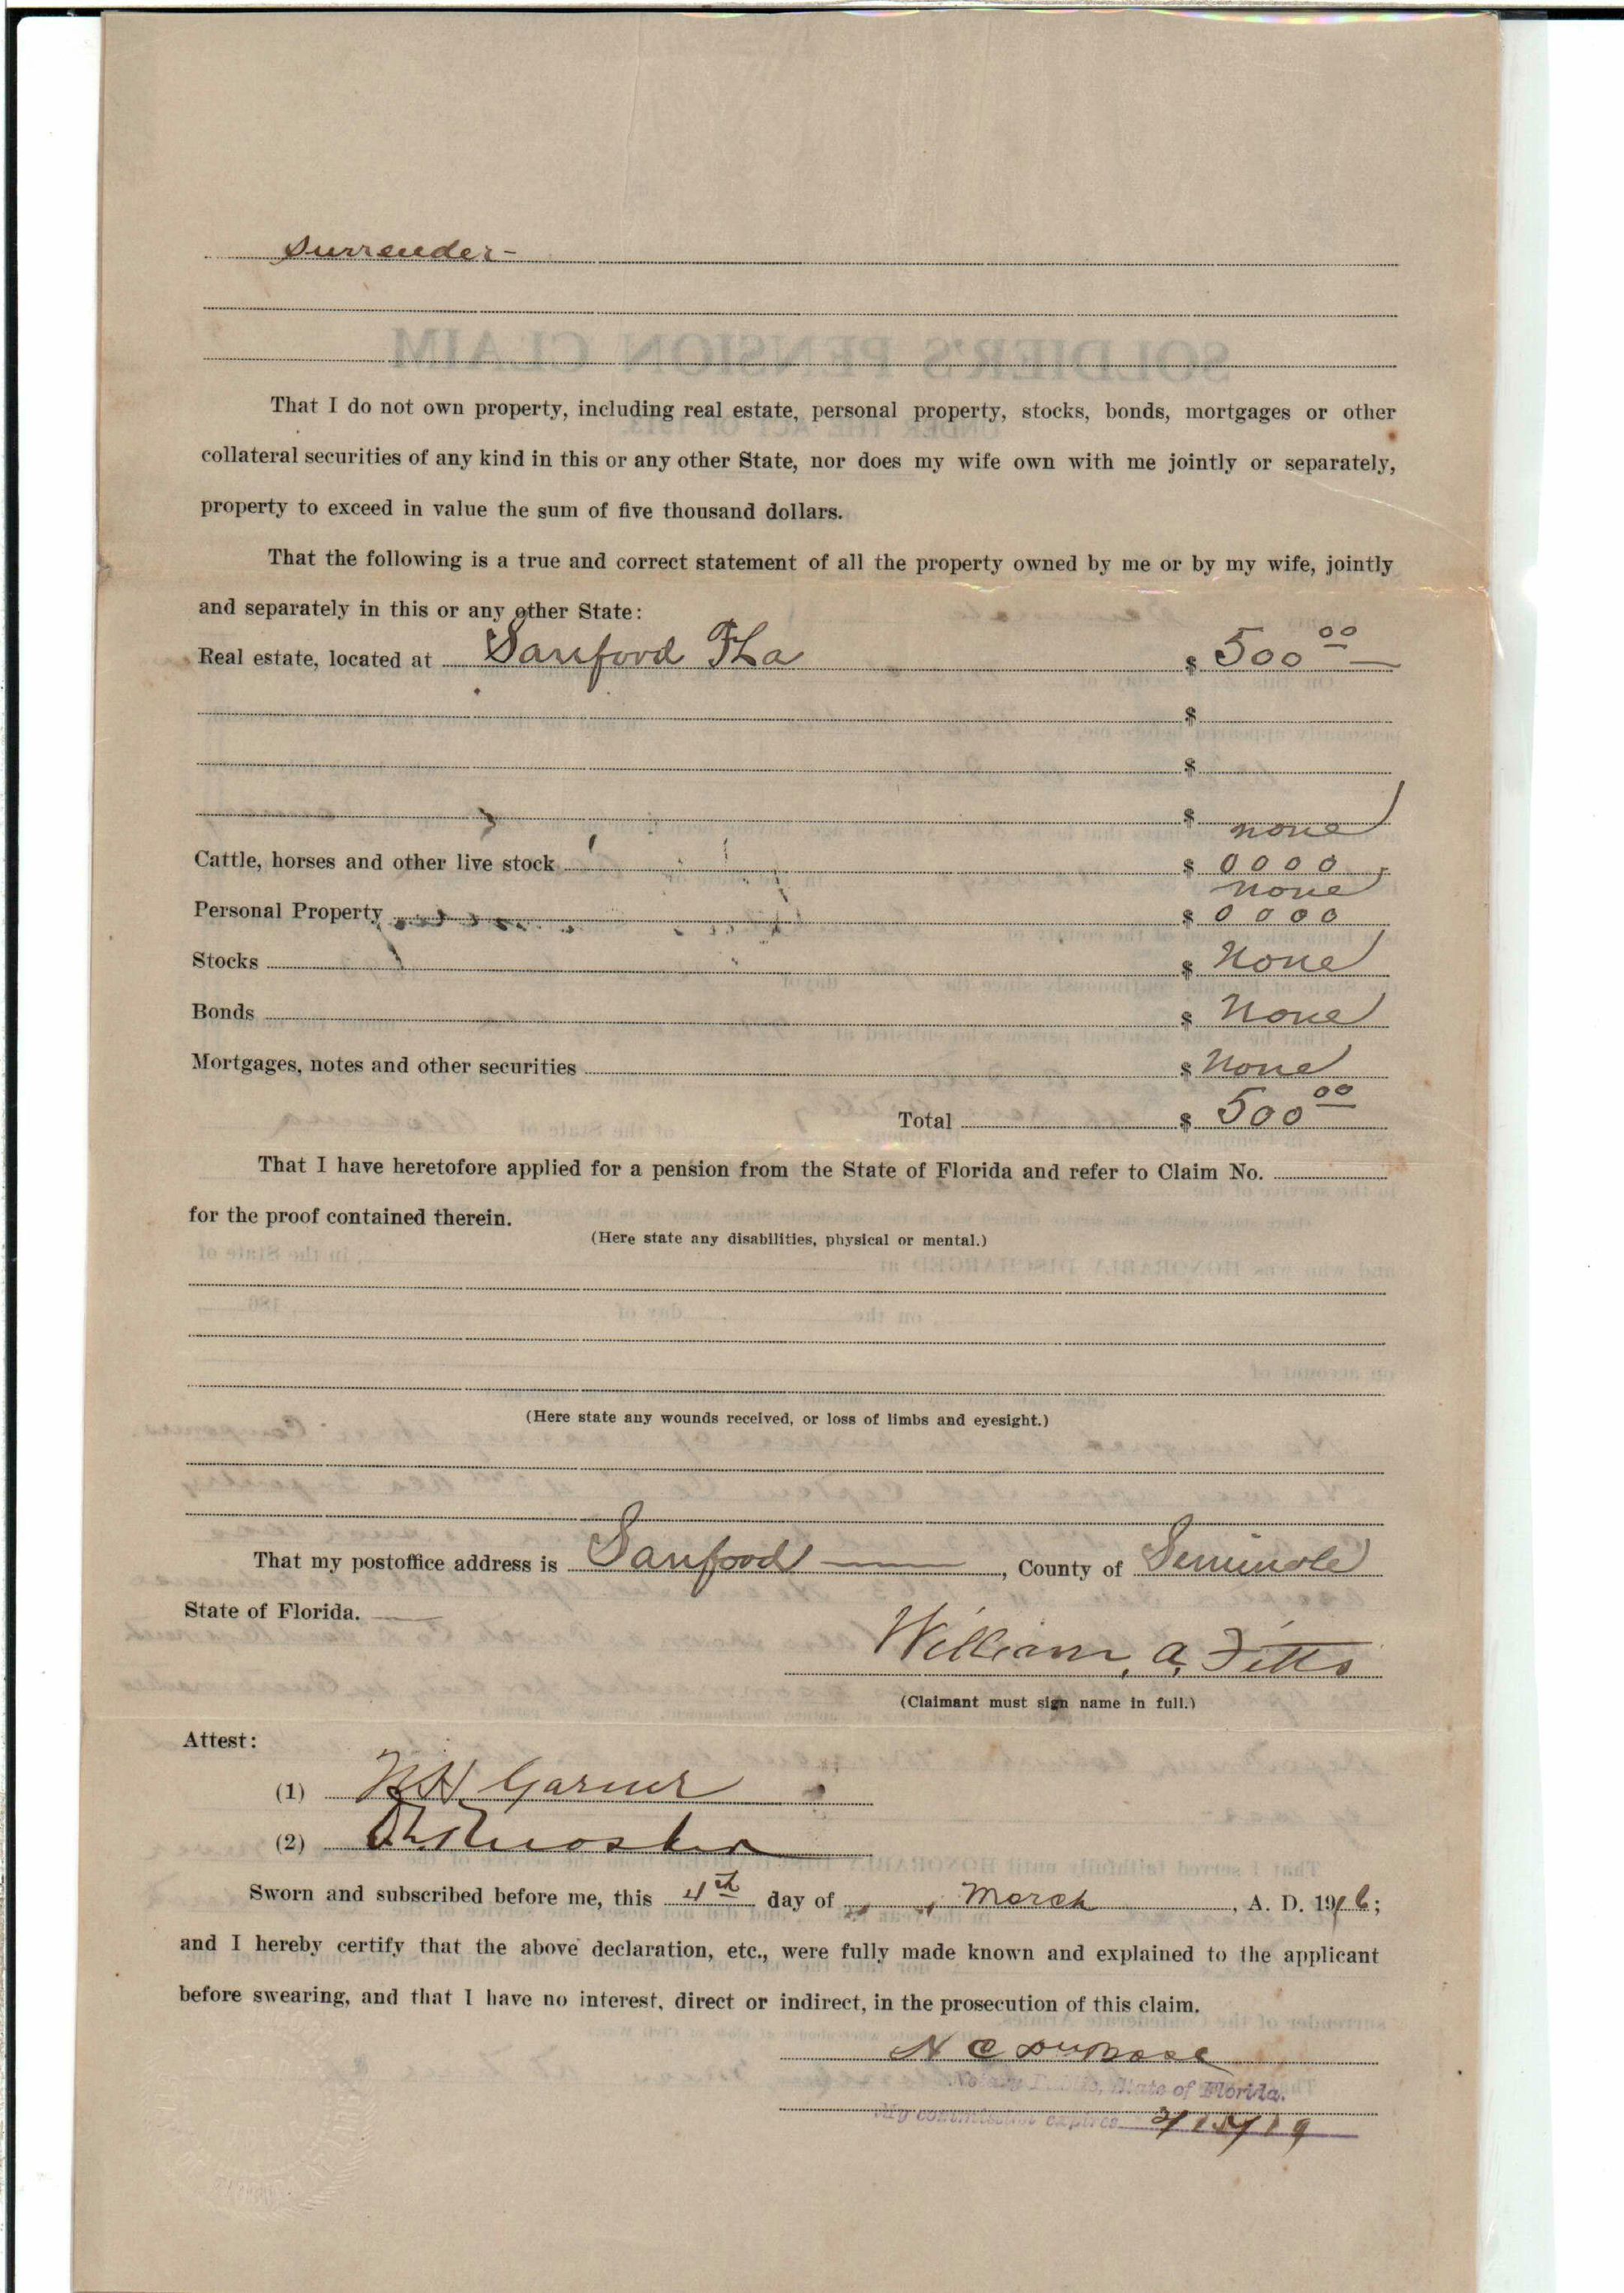 Surrender-
That I do not own property, including real estate, personal property, stocks, bonds, mortgages or other
collateral securities of any kind in this or any other State, nor does my wife own with me jointly or separately,
property to exceed in value the sum of five thousand dollars.
That the following is a true and correct statement of all the property owned by me or by my wife, jointly
and separately in this or any other State:
Real estate, located at Sanford Fla $ 500 00
$
$
$
none
Cattle, horses and other live stock $ 0000
none
Personal Property $ 0000
Stocks $ None
Bonds $ None
Mortgages, notes and other securities $ None
Total $ 500 00
That I have heretofore applied for a pension from the State of Florida and refer to Claim No.
for the proof contained therein.
(Here state any disabilities, physical or mental.)
(Here state any wounds received, or loss of limbs and eyesight.)
That my postoffice address is Sanford, County of Seminole
State of Florida.
William, A, Fitts
(Claimant must sign name in full.)
Attest:
(1) Garner
(2)
Sworn and subscribed before me, this 4th day of March, A. D. 1916;
and I hereby certify that the above declaration, etc., were fully made known and explained to the applicant
before swearing, and that I have no interest, direct or indirect, in the prosecution of this claim.
N C DuBose
Notary Public, State of Florida.
My commission expires